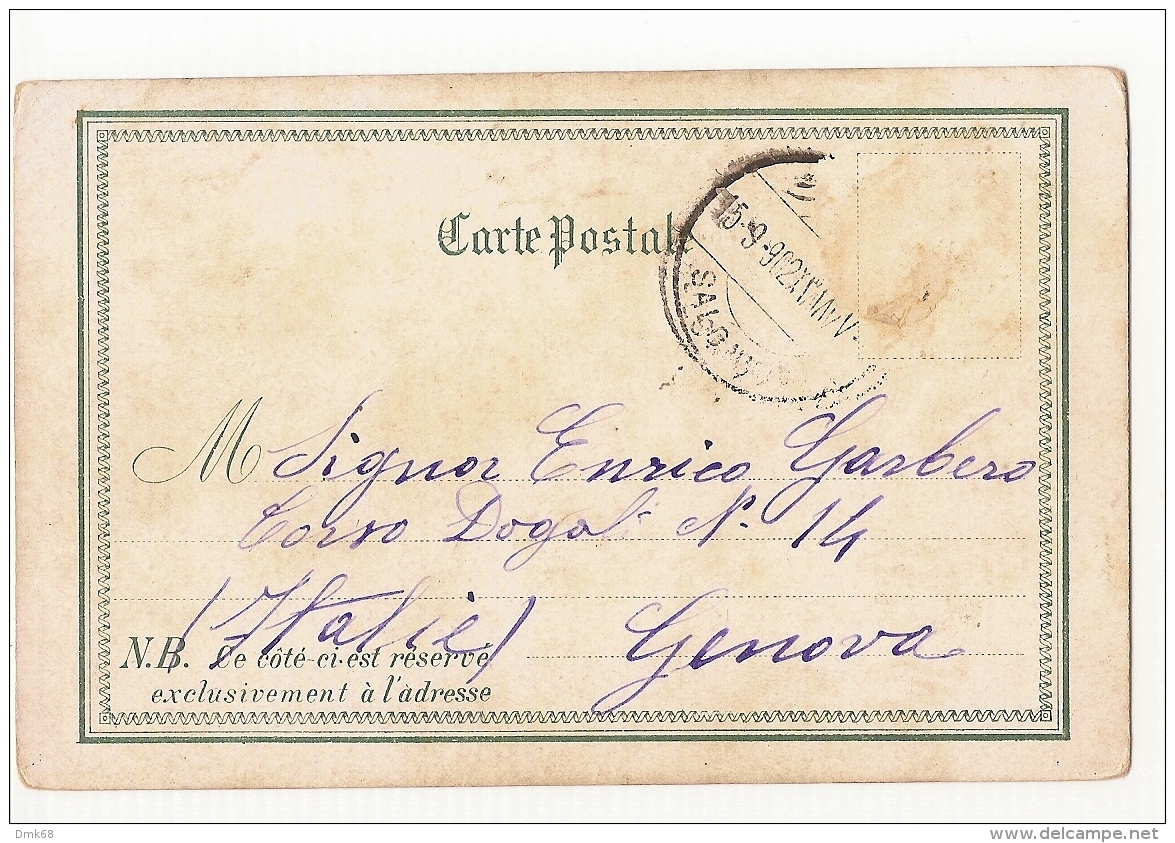 Carte Postale
15-9-912
SALONIQUE
M Signor Enrico Garbero
Corso Dogali N. 14
(Italie) Genova
N.B. Ce côté-ci est réservé
exclusivement à l'adresse
Dmk68
http://www.delcampe.net